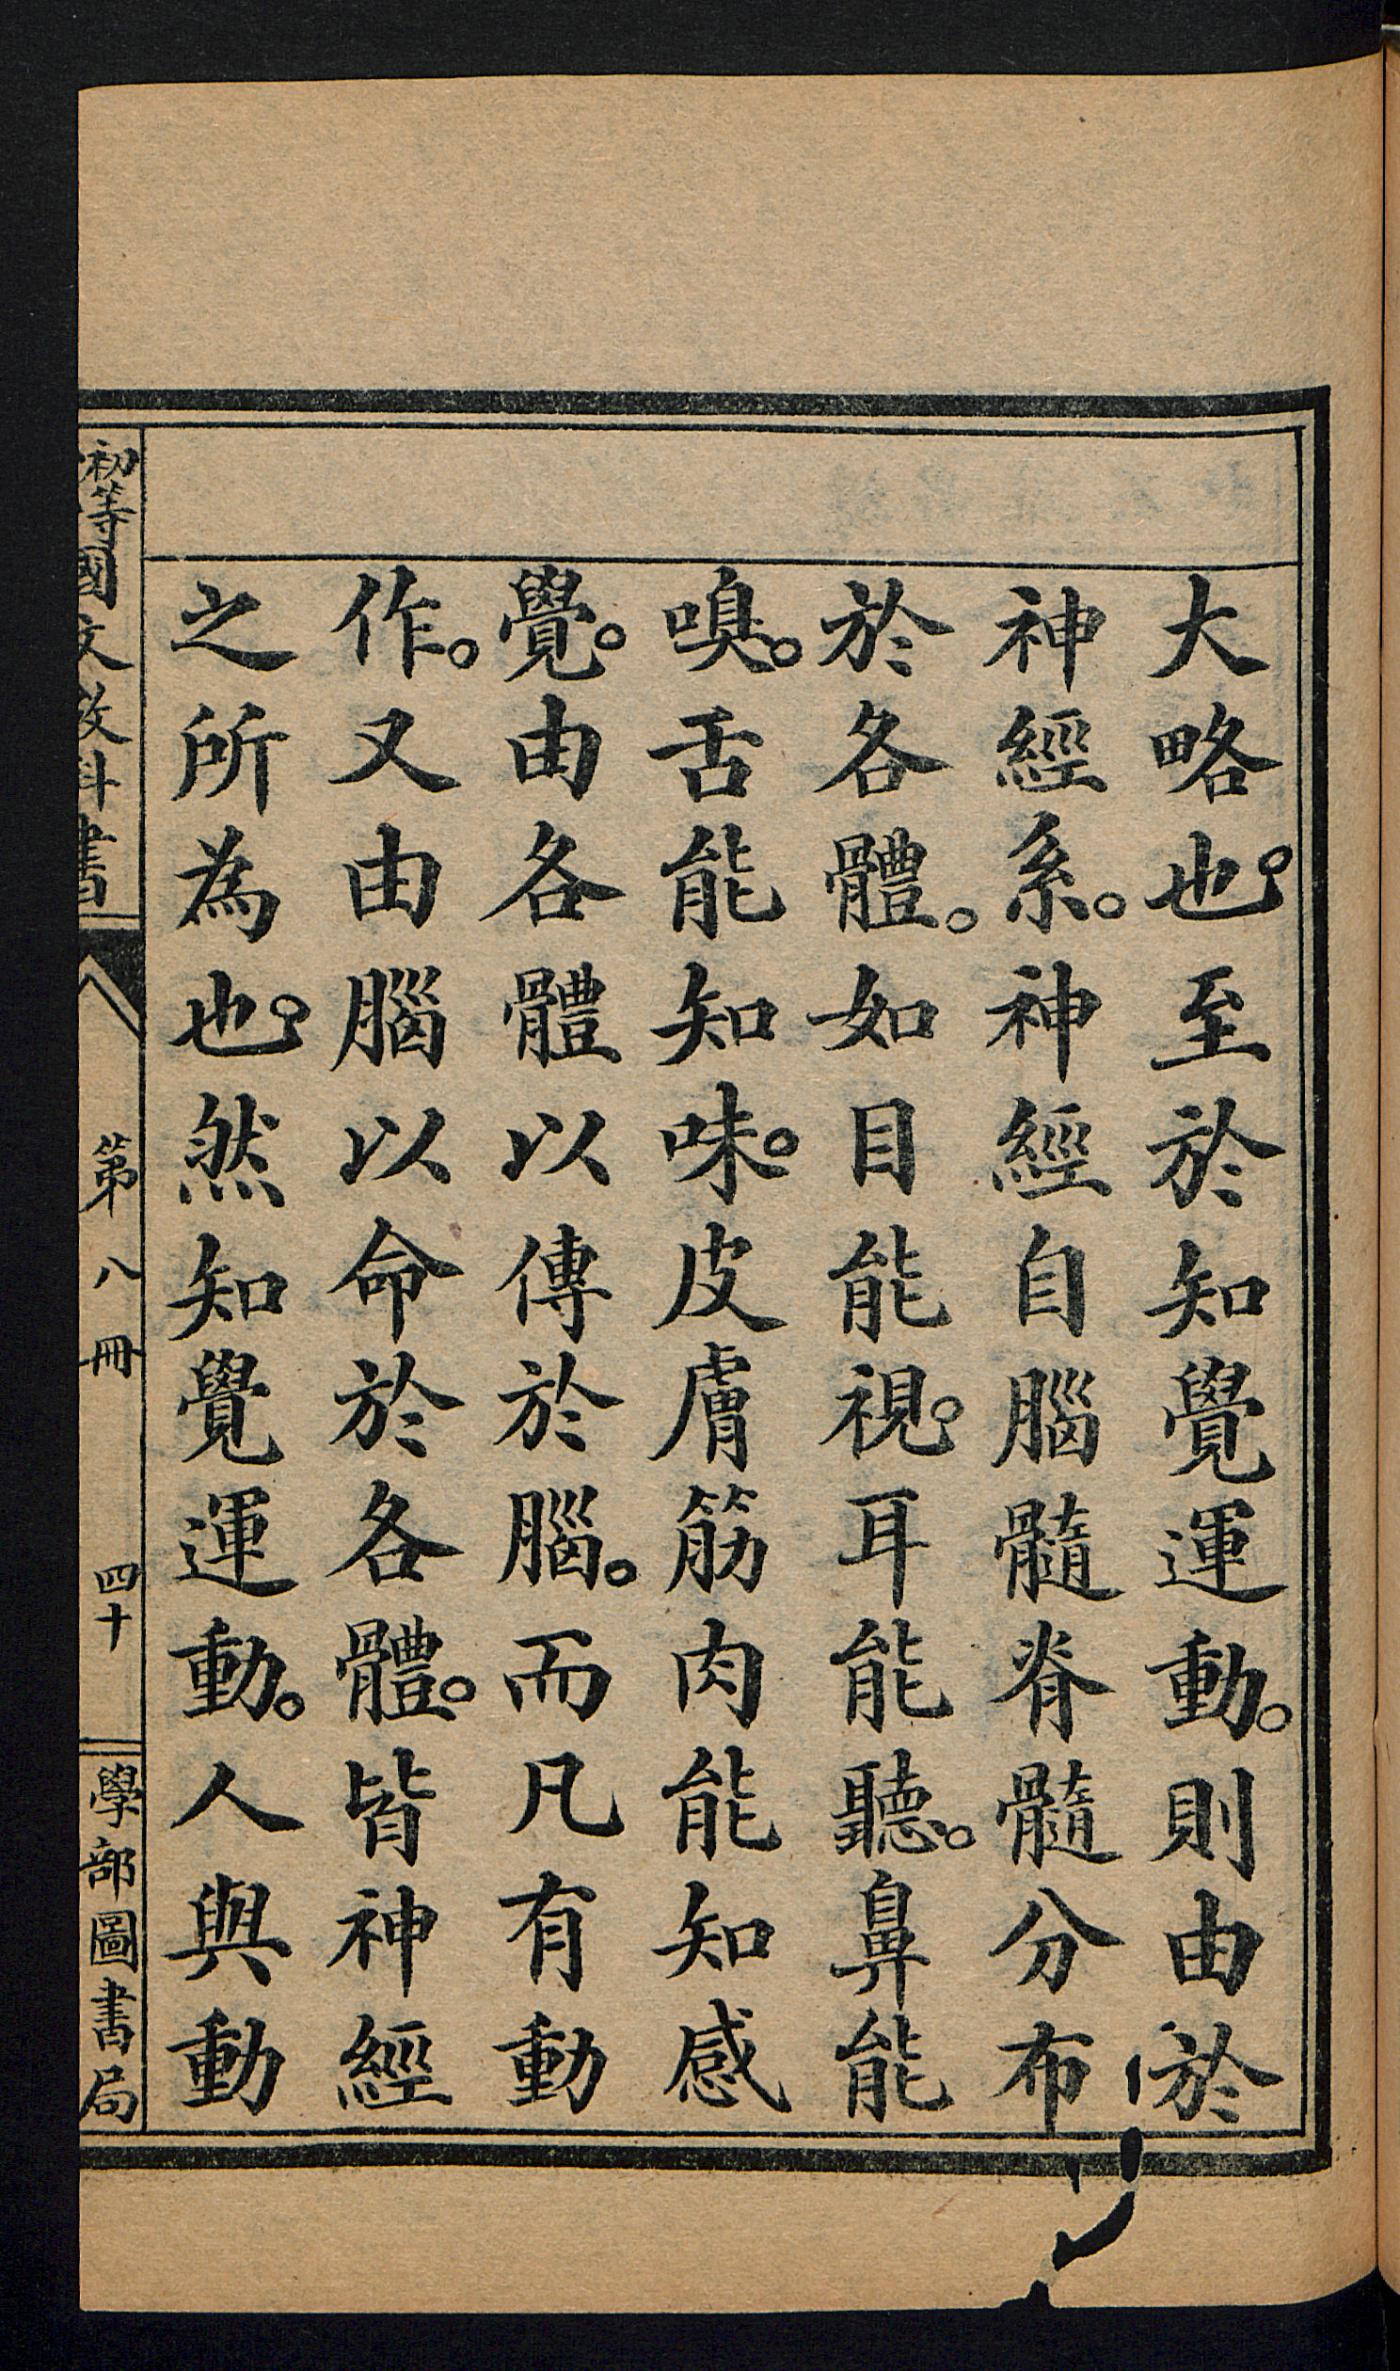 大略也。至於知覺運動。則由於
神經系。神經自腦髓脊髓分布
於各體。如目能視。耳能聽。鼻能
嗅。舌能知味。皮膚筋肉能知感
覺。由各體以傳於腦。而凡有動
作。又由腦以命於各體。皆神經
之所為也。然知覺運動。人與動
初等國文教科書
第八冊
四十
學部圖書局